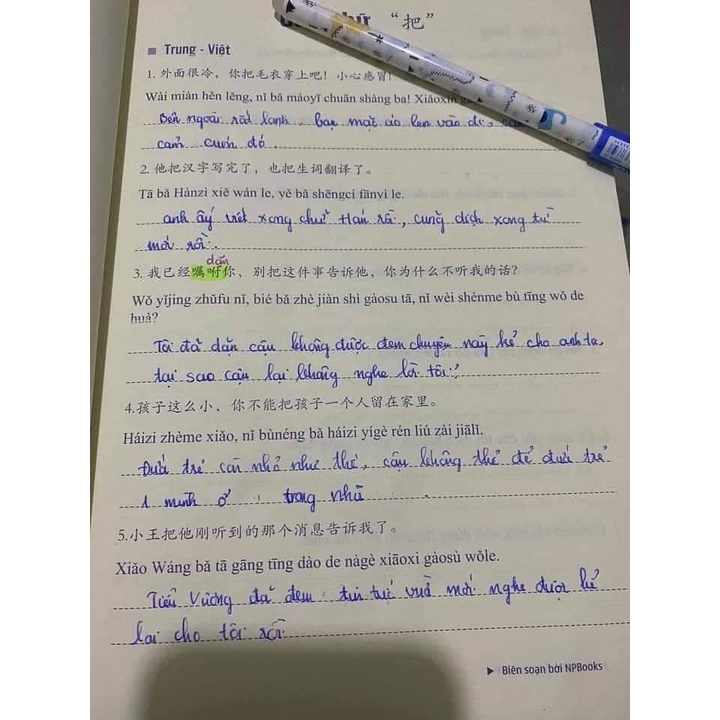 “把”
Trung - Việt
1. 外面很冷，你把毛衣穿上吧！小心感冒！
Wài miàn hěn lěng, nǐ bǎ máoyī chuān shàng ba! Xiǎoxīn
Bên ngoài rất lạnh, bạn mặc áo len vào đi,
cảm cúm đó.
2. 他把汉字写完了，也把生词翻译了。
Tā bǎ Hànzì xiě wán le, yě bǎ shēngcí fānyì le.
anh ấy viết xong chữ Hán rồi, cũng dịch xong từ
mới rồi.
dặn
3. 我已经嘱咐你，别把这件事告诉他，你为什么不听我的话？
Wǒ yǐjing zhǔfu nǐ, bié bǎ zhè jiàn shì gàosu tā, nǐ wèi shénme bù tīng wǒ de
huà?
Tôi đã dặn cậu không được đem chuyện này kể cho anh ta,
tại sao cậu lại không nghe lời tôi?
4.孩子这么小，你不能把孩子一个人留在家里。
Háizi zhème xiǎo, nǐ bùnéng bǎ háizi yígè rén liú zài jiālǐ.
Đứa trẻ còn nhỏ như thế, cậu không thể để đứa trẻ
1 mình ở trong nhà
5.小王把他刚听到的那个消息告诉我了。
Xiǎo Wáng bǎ tā gāng tīng dào de nàgè xiāoxi gàosù wǒle.
Tiểu Vương đã đem tin tức vừa mới nghe được kể
lại cho tôi rồi
Biên soạn bởi NPBooks